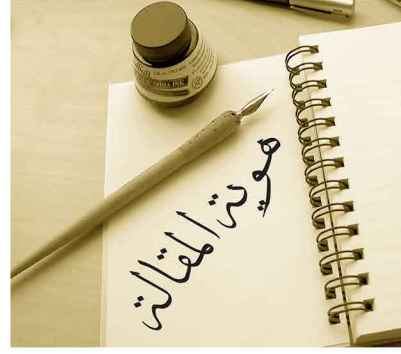 هوية المقالة